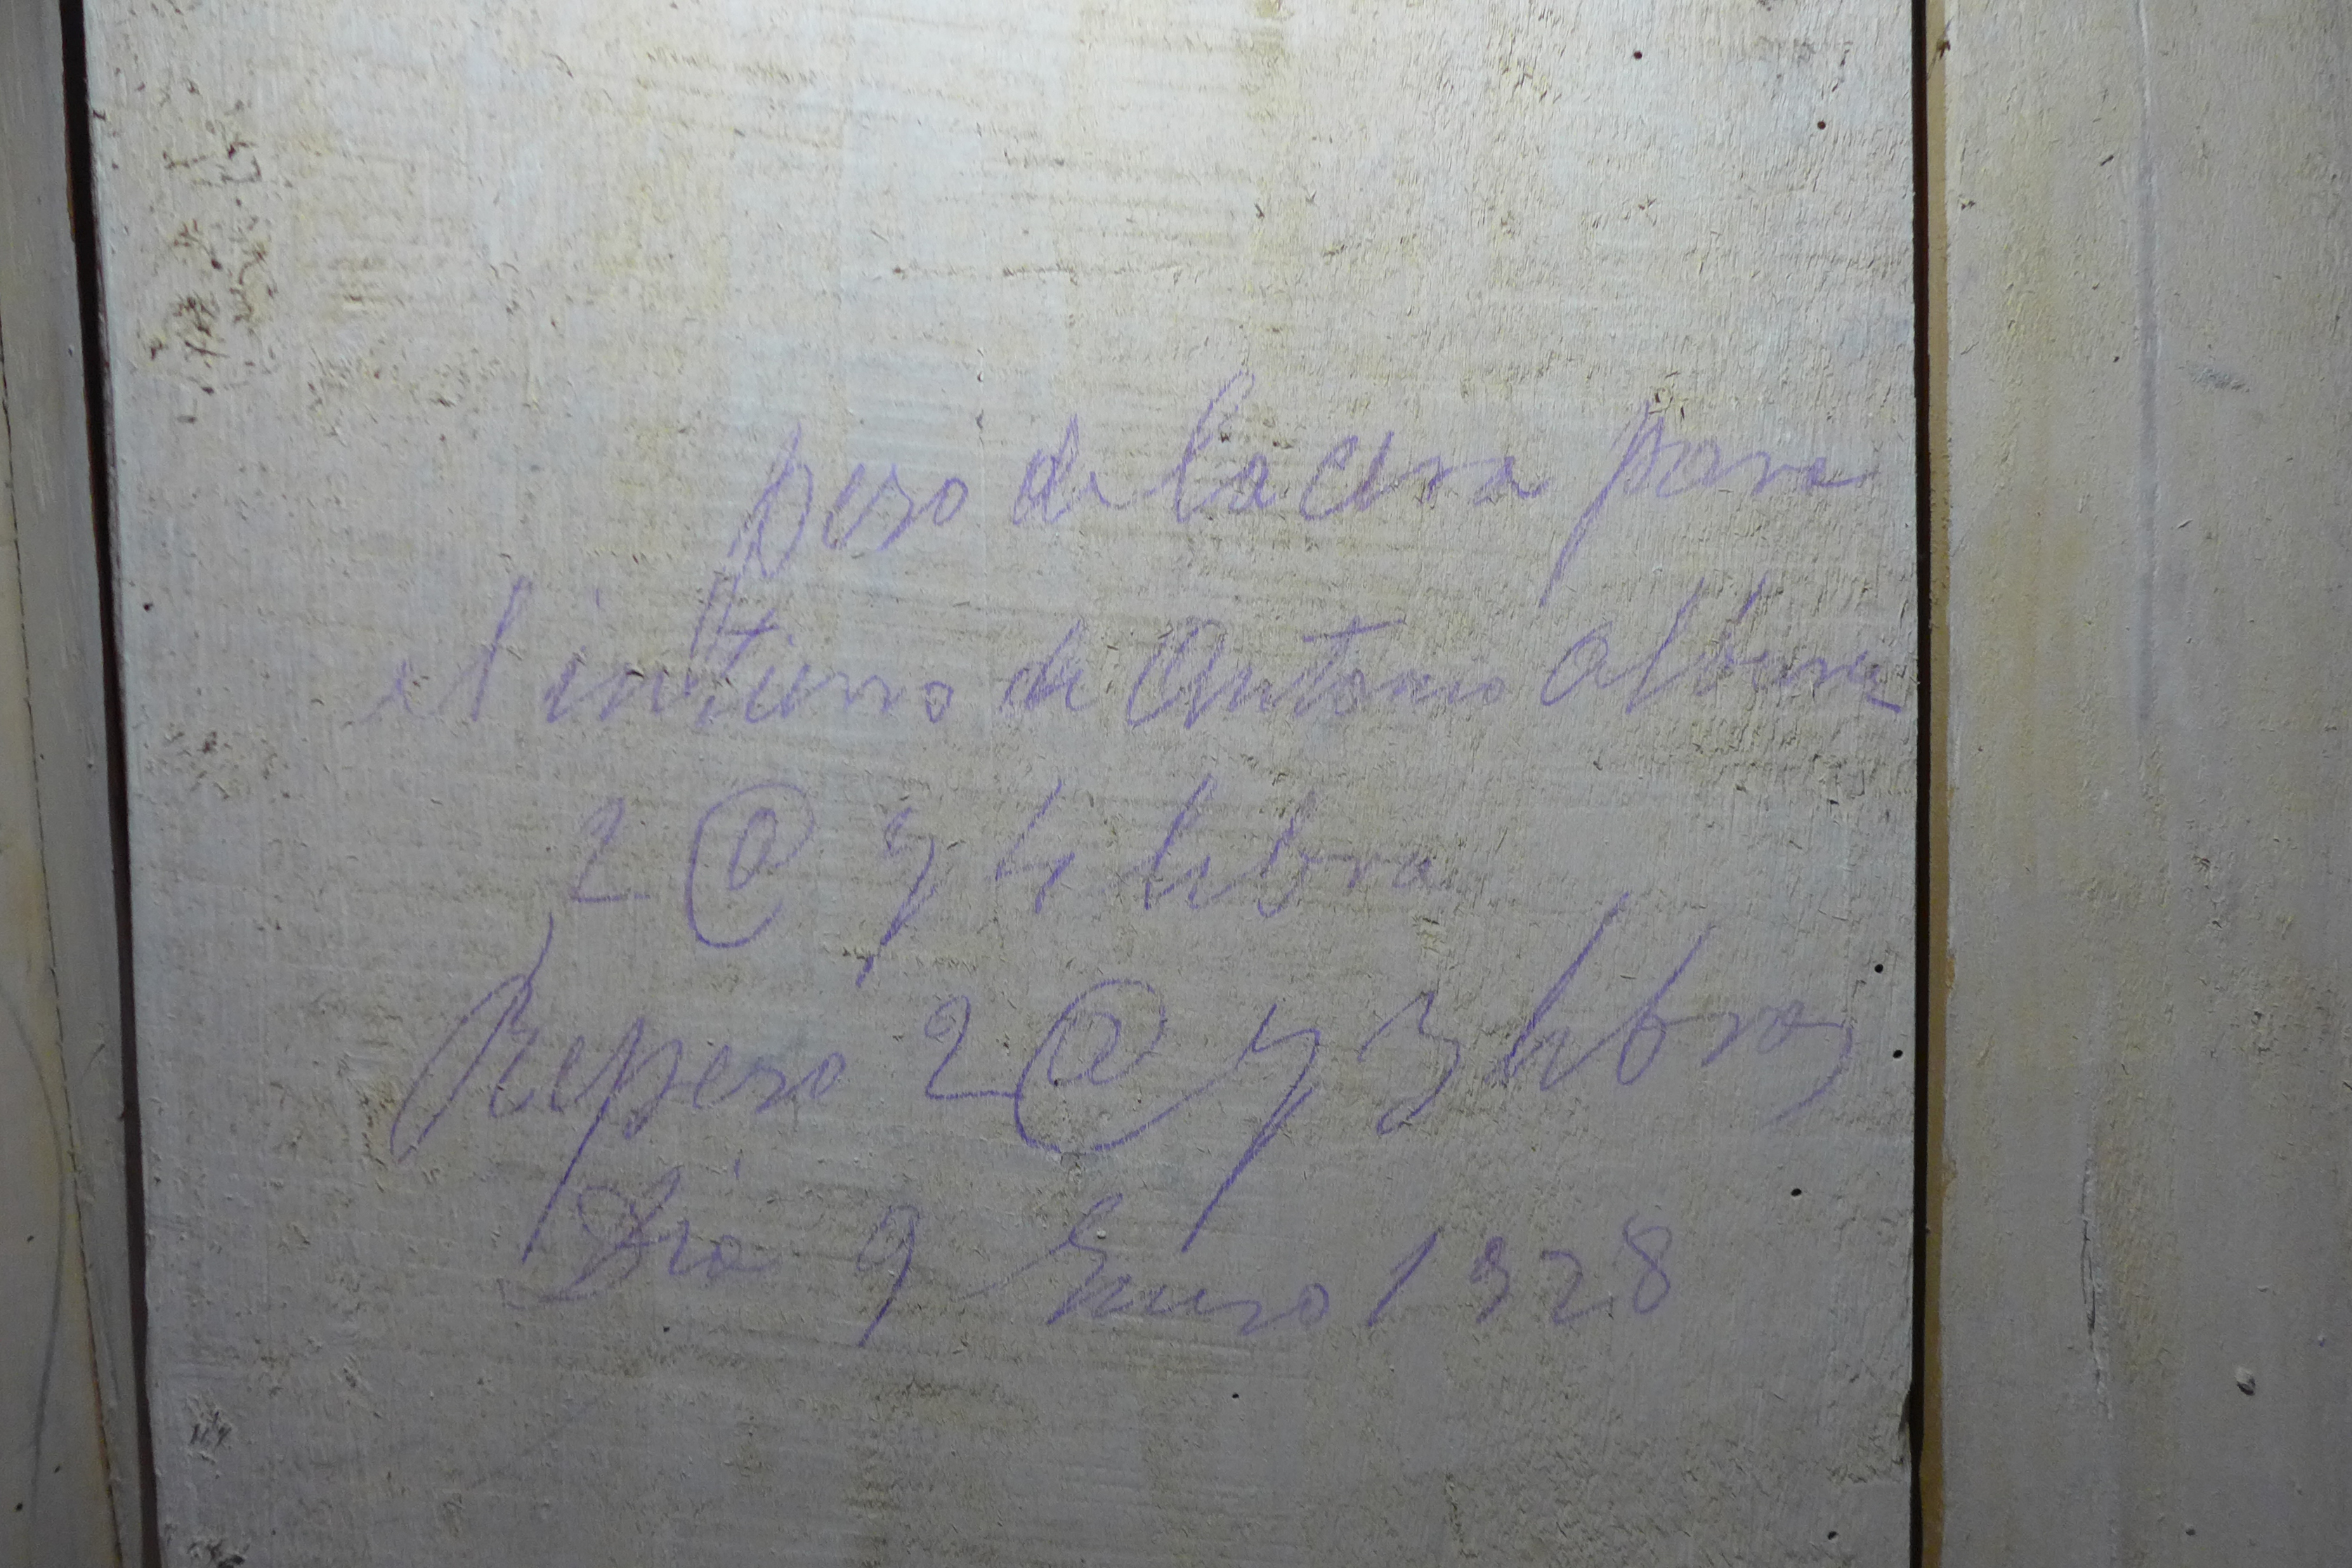 peso de la cera para
el intierro de Antonio
2 @ y 4 libra
Repeso 2 @ y 3 libras
Dia 9 Enero 1928